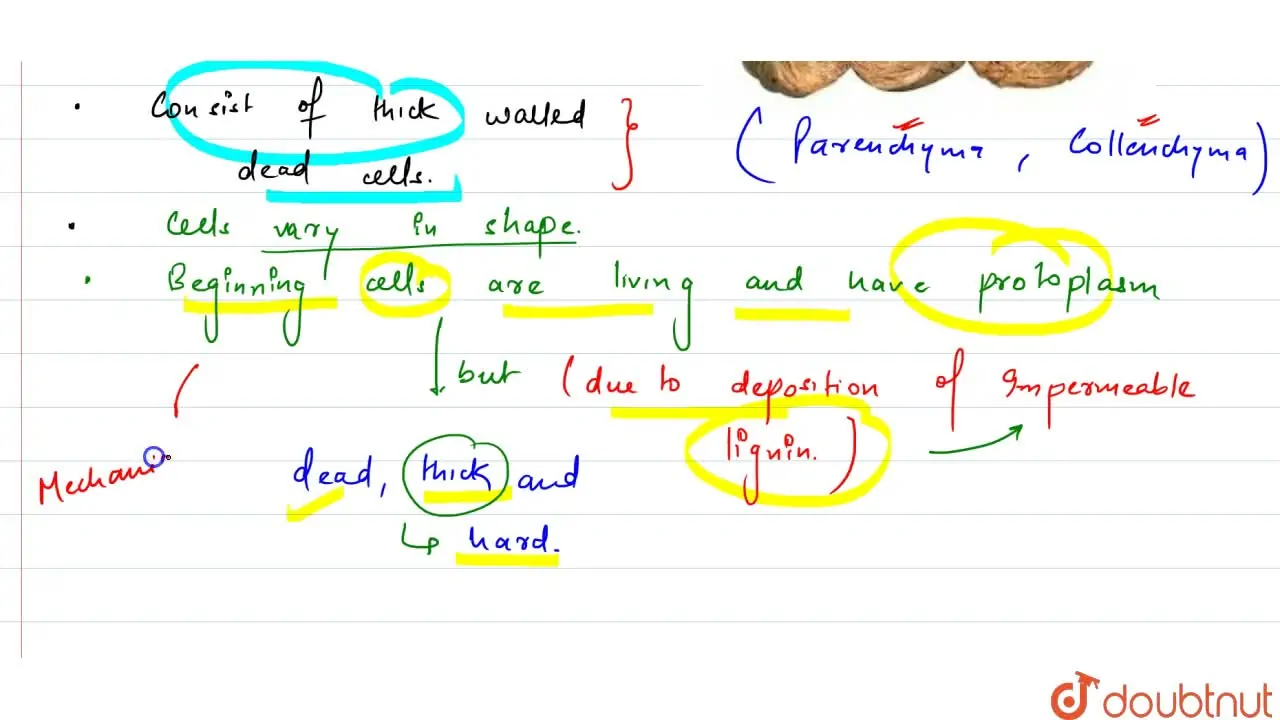 • Consist of thick walled
dead cells.
(Parenchyma, Collenchyma)
• Cells vary in shape.
• Beginning cells are living and have protoplasm
but (due to deposition of Impermeable
lignin.)
Mechani
dead, thick and
hard.
doubtnut